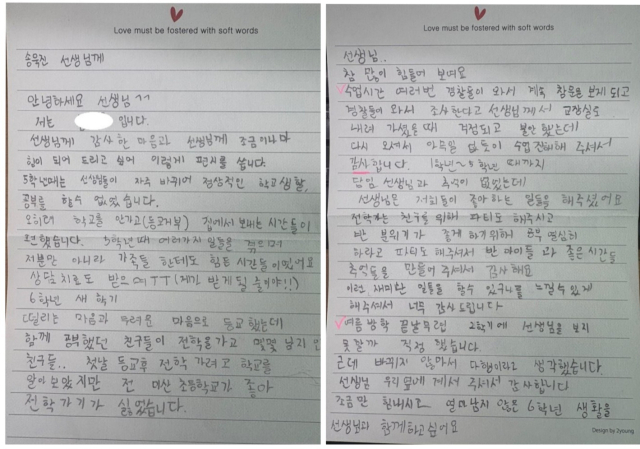 Love must be fostered with soft words
송욱진 선생님께
안녕하세요 선생님ㄱㄱ
저는 입니다.
선생님께 감사한 마음과 선생님께 조금이나마
힘이 되어 드리고 싶어 이렇게 편지를 씁니다.
5학년때는 선생님들이 자주 바뀌어 정상적인 학교생활,
공부를 할수 없었습니다.
오히려 학교를 안가고(등교거부) 집에서 보내는 시간들이
편했습니다. 5학년때 여러가지 일들을 겪으며
저뿐만 아니라 가족들 한테도 힘든 시간들이였어요
상담치료도 받으며TT(제가 받게될 줄이야!!)
6학년 새 학기
떨리는 마음과 두려운 마음으로 등교했는데
함께 공부했던 친구들이 전학을가고 몇몇 남지
친구들.. 첫날 등교후 전학 가려고 학교를
알아보았지만 전 미산초등학교가 좋아
전학가기가 싫었습니다.
Love must be fostered with soft words
선생님..
참 많이 힘들어 보여요
수업시간 여러번 경찰들이 와서 계속 창문을 보게되고
경찰들이 와서 조사한다고 선생님께서 교장실로
내려 가셨을때 걱정되고 불안했는데
다시 오셔서 아무일 없듯이 수업 진행해 주셔서
감사합니다. 1학년~5학년 때까지
담임 선생님과 추억이 없었는데
선생님은 저희들이 좋아하는 일들을 해주셨어요
전학가는 친구를 위해 파티도 해주시고
반 분위기가 좋게 하기위해 공부 열심히
하라고 파티도 해주셔서 반 아이들과 좋은 시간들
추억들을 만들어 주셔서 감사해요
이런 재미난 일들을 할수 있구나를 느낄수 있게
해주셔서 너무 감사드립니다
여름방학 끝날무렵 2학기에 선생님을 보지
못할까 걱정했습니다.
근데 바뀌지 않아서 다행이라고 생각했습니다.
선생님 우리옆에 계셔 주셔서 감사합니다
조금만 힘내시고 얼마남지 않은 6학년 생활을
선생님과 함께하고싶어요
Design by 3young